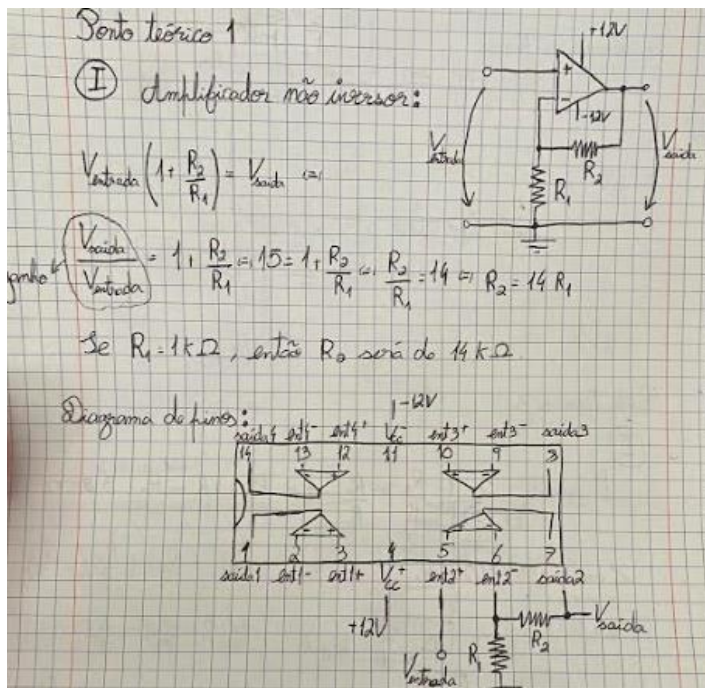 Ponto teórico 1
+12V
I Amplificador não inversor:
+
-
-12V
Ventrada
Vsaida
R2
R1
Ventrada (1 + R2/R1) = Vsaida (=)
Vsaida/Ventrada = 1 + R2/R1 (=) 15 = 1 + R2/R1 (=) R2/R1 = 14 (=) R2 = 14 R1
Se R1 = 1kΩ, então R2 será de 14 kΩ
Diagrama de pinos:
-12V
saida4 ent4- ent4+ Vcc- ent3+ ent3- saida3
14 13 12 11 10 9 8
- + + -
- + + -
1 2 3 4 5 6 7
saida1 ent1- ent1+ Vcc+ ent2+ ent2- saida2
+12V
R2
Vsaida
R1
Ventrada